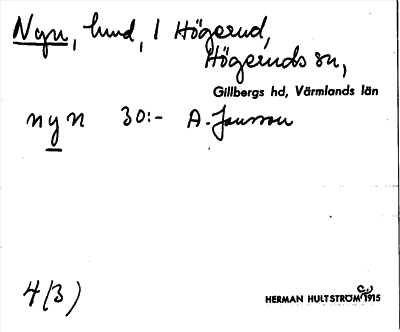 Nyn, hund, 1 Högerud,
Högeruds sn,
Gillbergs hd, Värmlands län
nyn 30:- A. Jansson
4(3)
HERMAN HULTSTRÖM 1915